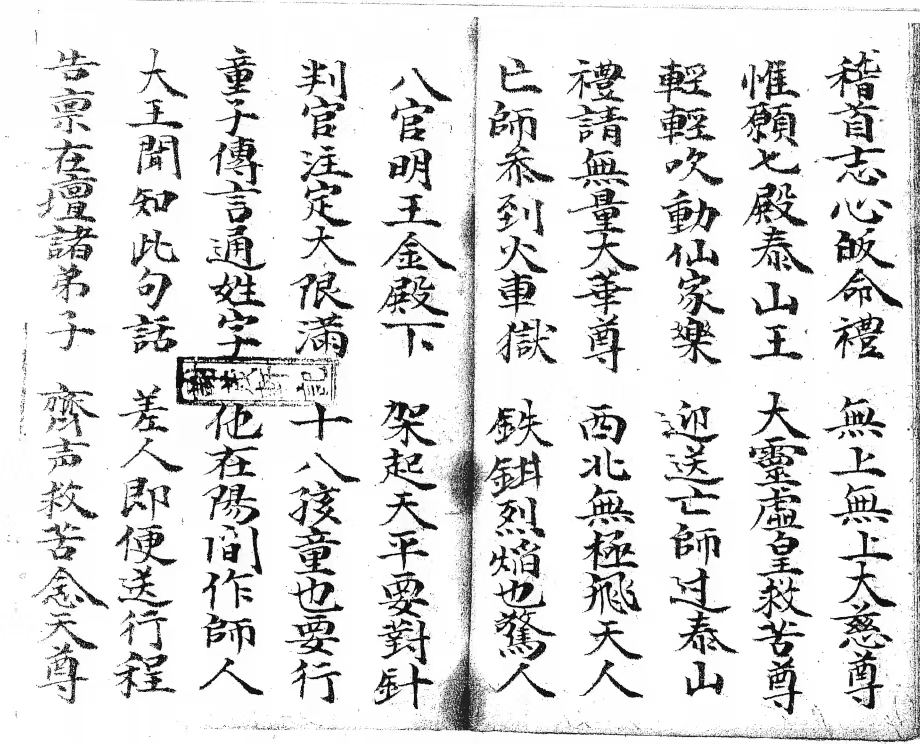 稽首志心皈命禮　無上無上大慈尊
惟願七殿泰山王　大靈虛皇救苦尊
輕輕吹動仙家樂　迎送亡師过泰山
禮請無量大華尊　西北無極飛天人
亡師忝到火車獄　鉄鉺烈焰也驚人
八官明王金殿下　架起天平要對針
判官注定大限滿　十八孩童也要行
童子傳言通姓字　他在陽間作師人
大王聞知此句話　差人即便送行程
告禀在壇諸弟子　齊声救苦念天尊